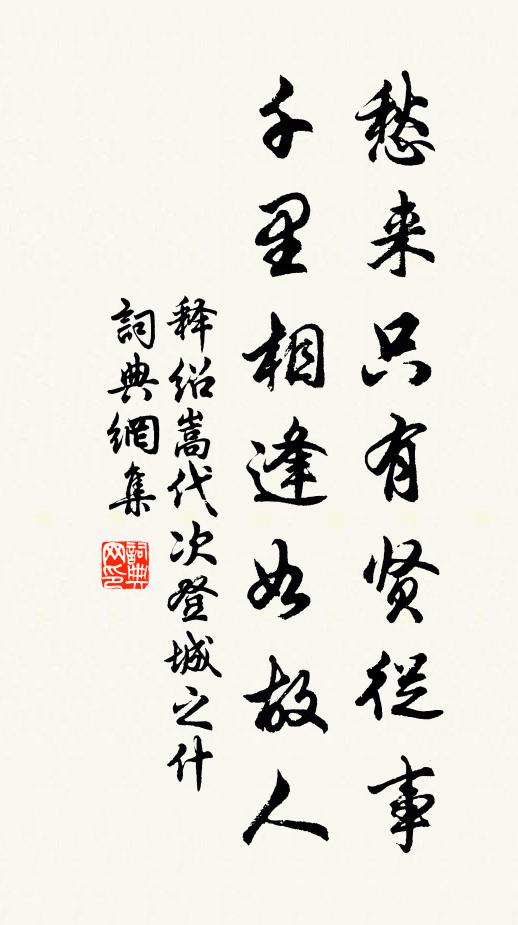 愁来只有贤從事
千里相逢如故人
释紹嵩代次登城之什
詞典網集
詞典网印